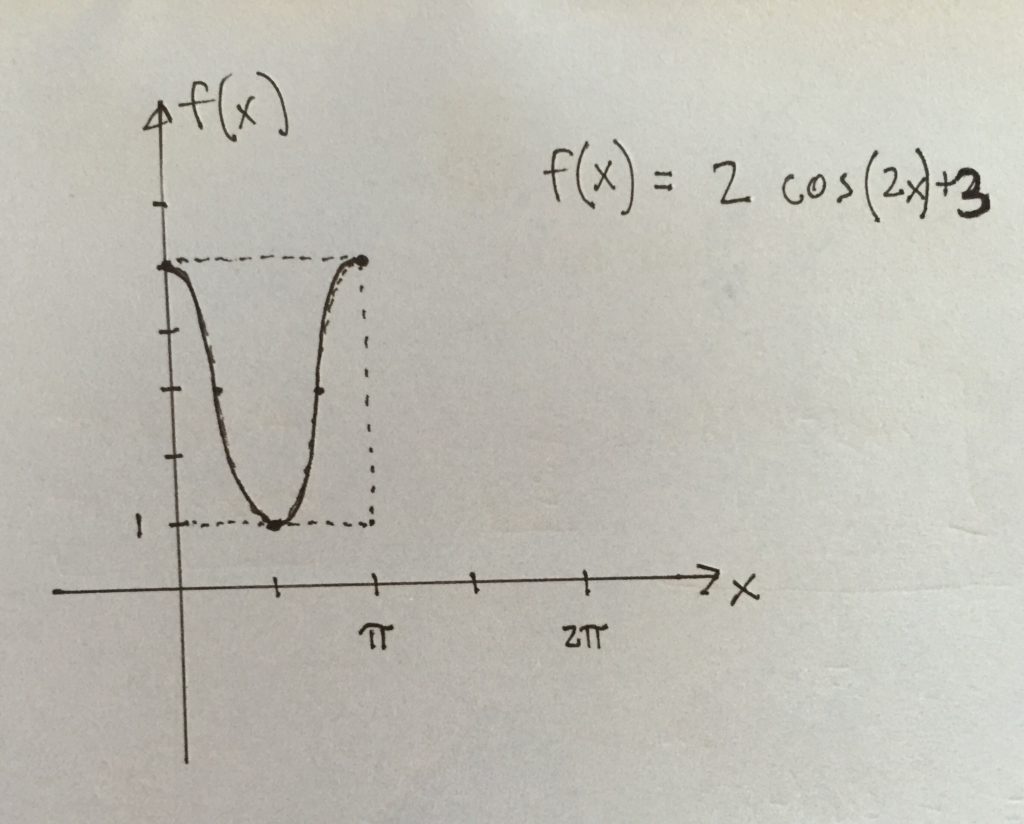 f(x)
f(x) = 2 cos(2x)+3
1
x
π
2π